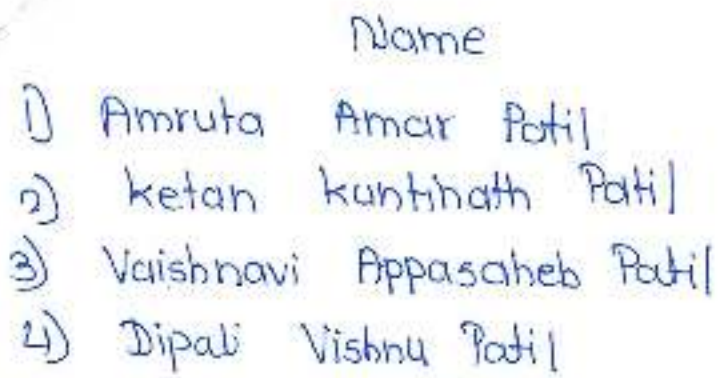 Name
1) Amruta Amar Patil
2) Ketan Kuntinath Patil
3) Vaishnavi Appasaheb Patil
4) Dipali Vishnu Patil